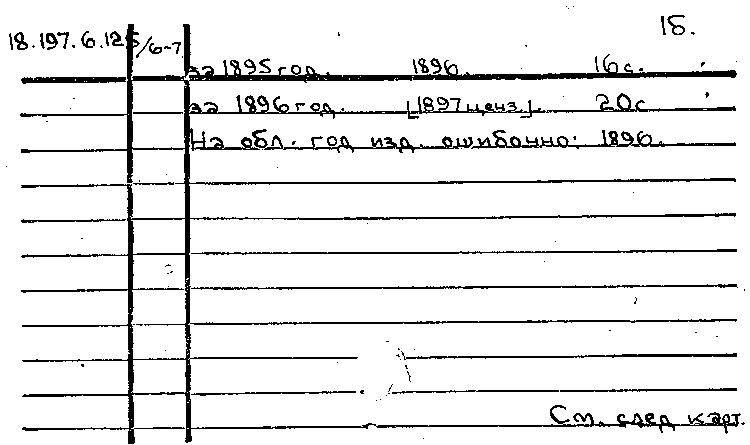 18.
18.197.6.125/6-7
за 1895 год. 1896. 16 с.
за 1896 год. [1897 ценз.]. 20 с
На обл. год изд. ошибочно: 1896.
См. след карт.